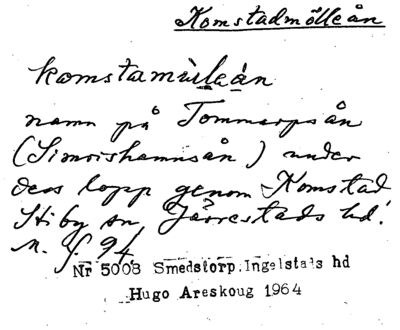 Komstadmölleån
komstamùleàn
namn på Tommarpsån
(Simrishamnsån) under
dess lopp genom Komstad
Stiby sn Järrestads hd.
n. f. 94.
Nr 5008 Smedstorp.Ingelstads hd
Hugo Areskoug 1964